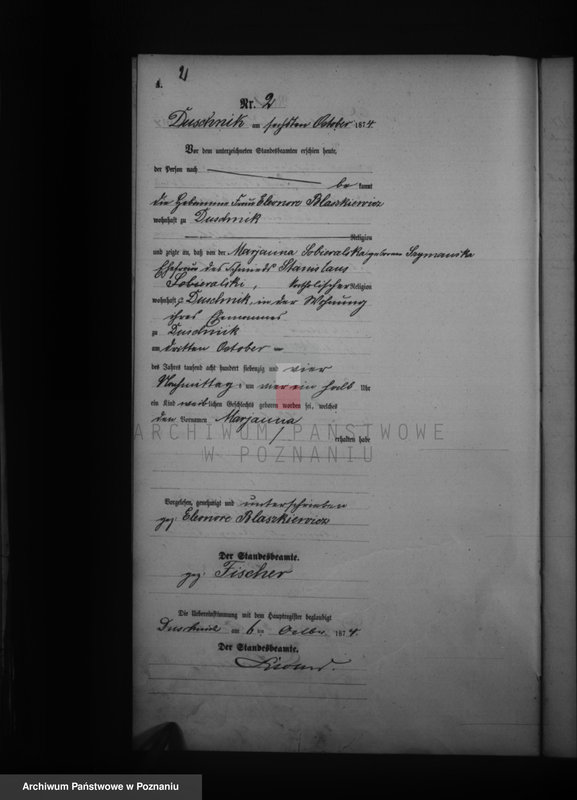 A. 2
Nr. 2
Duschnik am sechsten October 1874.
Vor dem unterzeichneten Standesbeamten erschien heute,
der Person nach
be kannt
die Hebamme Frau Eleonore Blaszkiewicz
wohnhaft zu Duschnik
Religion
und zeigte an, daß von der Marjanna Sobieralska geborenen Szymanska
Ehefrau des Schmieds Stanislaus
Sobieralski, katholischer Religion
wohnhaft zu Duschnik, in der Wohnung
ihres Ehemannes
zu Duschnik
am dritten October
des Jahres tausend acht hundert siebenzig und vier
Nachmittags um vier ein halb Uhr
ein Kind weiblichen Geschlechts geboren worden sei, welches
den Vornamen Marjanna
erhalten habe
ARCHIWUM PAŃSTWOWE
W POZNANIU
Vorgelesen, genehmigt und unterschrieben
gez. Eleonore Blaszkiewicz
Der Standesbeamte.
gez. Fischer
Die Uebereinstimmung mit dem Hauptregister beglaubigt
Duschnik am 6 ten Octbr. 1874.
Der Standesbeamte.
Archiwum Państwowe w Poznaniu